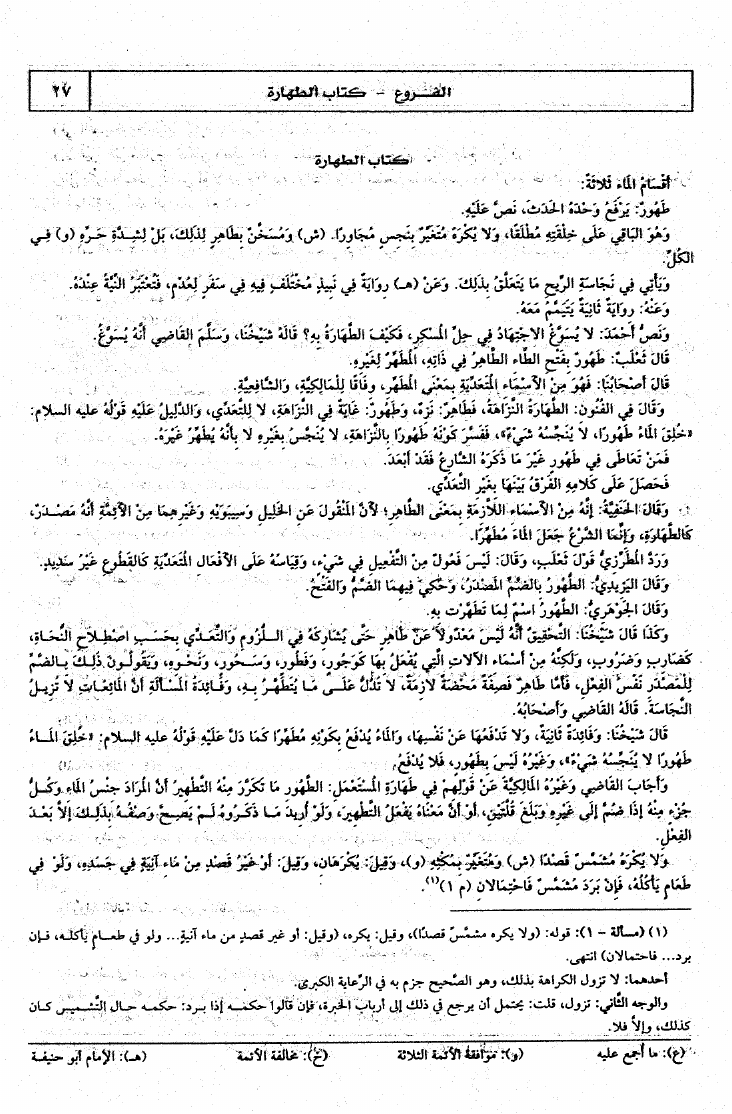 الفـــروع - كتاب الطهارة
٢٧
كتاب الطهارة
أَقْسَامُ المَاءِ ثَلاثَةٌ:
طَهُورٌ: يَرْفَعُ وَحْدَهُ الحَدَثَ، نَصَّ عَلَيْهِ.
وَهُوَ البَاقِي عَلَى خِلْقَتِهِ مُطْلَقًا، وَلا يُكْرَهُ مُتَغَيِّرٌ بِنَجِسٍ مُجَاوِرًا. (ش) وَمُسَخَّنٌ بِطَاهِرٍ لِذَلِكَ، بَلْ لِشِدَّةِ حَرِّهِ (و) فِـي
الكُلِّ.
وَيَأْتِي فِي نَجَاسَةِ الرِّيحِ مَا يَتَعَلَّقُ بِذَلِكَ. وَعَنْ (هـ) رِوَايَةٌ فِي نَبِيذٍ مُخْتَلَفٍ فِيهِ فِي سَفَرٍ لِعُدْمٍ، فَتُعْتَبَرُ النِّيَّةُ عِنْدَهُ.
وَعَنْهُ: رِوَايَةٌ ثَانِيَةٌ يَتَيَمَّمُ مَعَهُ.
وَنَصَّ أَحْمَدَ: لا يُسَوَّغُ الاجْتِهَادُ فِي حِلِّ المُسْكِرِ، فَكَيْفَ الطَّهَارَةُ بِهِ؟ قَالَهُ شَيْخُنَا، وَسَلَّمَ القَاضِي أَنَّهُ يُسَوَّغُ.
قَالَ ثَعْلَبٌ: طَهُورٌ بِفَتْحِ الطَّاءِ الطَّاهِرُ فِي ذَاتِهِ، المُطَهِّرُ لِغَيْرِهِ.
قَالَ أَصْحَابُنَا: فَهُوَ مِنْ الأَسْمَاءِ المُتَعَدِّيَةِ بِمَعْنَى المُطَهِّرِ، وِفَاقًا لِلْمَالِكِيَّةِ، وَالشَّافِعِيَّةِ.
وَقَالَ فِي الفُنُونِ: الطَّهَارَةُ النَّزَاهَةُ، فَطَاهِرٌ: نَزِهٌ، وَطَهُورٌ: غَايَةٌ فِي النَّزَاهَةِ، لا لِلتَّعَدِّي، وَالدَّلِيلُ عَلَيْهِ قَوْلُهُ عليه السلام:
«خُلِقَ المَاءُ طَهُورًا، لا يُنَجِّسُهُ شَيْءٌ»، فَفَسَّرَ كَوْنَهُ طَهُورًا بِالنَّزَاهَةِ، لا يُنَجَّسُ بِغَيْرِهِ لا بِأَنَّهُ يُطَهِّرُ غَيْرَهُ.
فَمَنْ تَعَاطَى فِي طَهُورٍ غَيْرَ مَا ذَكَرَهُ الشَّارِعُ فَقَدْ أَبْعَدَ.
فَحَصَلَ عَلَى كَلامِهِ الفَرْقُ بَيْنَهَا بِغَيْرِ التَّعَدِّي.
وَقَالَ الحَنَفِيَّةُ: إنَّهُ مِنْ الأَسْمَاءِ اللاَّزِمَةِ بِمَعْنَى الطَّاهِرِ؛ لأَنَّ المَنْقُولَ عَنِ الخَلِيلِ وَسِيبَوَيْهِ وَغَيْرِهِمَا مِنْ الأَئِمَّةِ أَنَّهُ مَصْـدَرٌ،
كَالطَّهَارَةِ، وَإِنَّمَا الشَّرْعُ جَعَلَ المَاءَ مُطَهِّرًا.
وَرَدَّ المُطَرِّزِيُّ قَوْلَ ثَعْلَبٍ، وَقَالَ: لَيْسَ فَعُولٌ مِنْ التَّفْعِيلِ فِي شَيْءٍ، وَقِيَاسُهُ عَلَى الأَفْعَالِ المُتَعَدِّيَةِ كَالقَطُوعِ غَيْرُ سَدِيدٍ.
وَقَالَ اليَزِيدِيُّ: الطُّهُورُ بِالضَّمِّ المَصْدَرُ، وَحُكِيَ فِيهِمَا الضَّمُّ وَالفَتْحُ.
وَقَالَ الجَوْهَرِيُّ: الطَّهُورُ اسْمٌ لِمَا تَطَهَّرْت بِهِ.
وَكَذَا قَالَ شَيْخُنَا: التَّحْقِيقُ أَنَّهُ لَيْسَ مَعْدُولاً عَنْ طَاهِرٍ حَتَّى يُشَارِكَهُ فِي الـلُّزُومِ وَالتَّعَدِّي بِحَسَـبِ اصْطِلاحِ النُّحَاةِ،
كَضَارِبٍ وَضَرُوبٍ، وَلَكِنَّهُ مِنْ أَسْمَاءِ الآلاتِ الَّتِي يُفْعَلُ بِهَا كَوَجُورٍ، وَفَطُورٍ، وَسَـحُورٍ، وَنَحْـوِهِ، وَيَقُولُـونَ ذَلِـكَ بِـالضَّمِّ
لِلْمَصْدَرِ نَفْسِ الفِعْلِ، فَأَمَّا طَاهِرٌ فَصِفَةٌ مَحْضَةٌ لازِمَةٌ، لا تَدُلُّ عَلَـى مَـا يُتَطَهَّـرُ بِـهِ، وَفَـائِدَةُ المَسْـأَلَةِ أَنَّ المَائِعَـاتِ لا تُزِيـلُ
النَّجَاسَةَ. قَالَهُ القَاضِي وَأَصْحَابُهُ.
قَالَ شَيْخُنَا: وَفَائِدَةٌ ثَانِيَةٌ، وَلا تَدْفَعُهَا عَنْ نَفْسِهَا، وَالمَاءُ يَدْفَعُ بِكَوْنِهِ مُطَهِّرًا كَمَا دَلَّ عَلَيْهِ قَوْلُهُ عليه السلام: «خُلِقَ المَـاءُ
طَهُورًا لا يُنَجِّسُهُ شَيْءٌ»، وَغَيْرُهُ لَيْسَ بِطَهُورٍ، فَلا يَدْفَعُ.
وَأَجَابَ القَاضِي وَغَيْرُهُ المَالِكِيَّةَ عَنْ قَوْلِهِمْ فِي طَهَارَةِ المُسْتَعْمَلِ: الطَّهُورُ مَا تَكَرَّرَ مِنْهُ التَّطْهِيرُ أَنَّ المُرَادَ جِنْسُ المَاءِ وَكُـلُّ
جُزْءٍ مِنْهُ إذَا ضُمَّ إلَى غَيْرِهِ وَبَلَغَ قُلَّتَيْنِ، أَوْ أَنَّ مَعْنَاهُ يَفْعَلُ التَّطْهِيرَ، وَلَوْ أُرِيدَ مَـا ذَكَـرُوهُ لَـمْ يَصِـحَّ وَصْفُـهُ بِذَلِـكَ إلاَّ بَعْـدَ
الفِعْلِ.
وَلا يُكْرَهُ مُشَمَّسٌ قَصْدًا (ش) وَمُتَغَيِّرٌ بِمُكْثِهِ (و)، وَقِيلَ: يُكْرَهَانِ، وَقِيلَ: أَوْ غَيْرُ قَصْدٍ مِنْ مَاءِ آنِيَةٍ فِي جَسَدِهِ، وَلَوْ فِي
طَعَامٍ يَأْكُلُهُ، فَإِنْ بَرَدَ مُشَمَّسٌ فَاحْتِمَالانِ (م ١)(١).
(١) (مسألة - ١): قوله: (ولا يكره مشمَّسٌ قصدًا)، وقيل: يكره، (وقيل: أو غير قصدٍ من ماء آنيةٍ... ولو في طعـامٍ يأكلـه، فـإن
برد... فاحتمالان) انتهى.
أحدهما: لا تزول الكراهة بذلك، وهو الصَّحيح جزم به في الرِّعاية الكبرى.
والوجه الثَّاني: تزول، قلت: يحتمل أن يرجع في ذلك إلى أرباب الخبرة، فإن قالوا حكمـه إذا بـرد: حكمـه حـال التَّشـميس كـان
كذلك، وإلاَّ فلا.
(ع): ما أجمع عليه (و): موافقة الأئمة الثلاثة (خ): مخالفة الأئمة (هـ): الإمام أبو حنيفـة